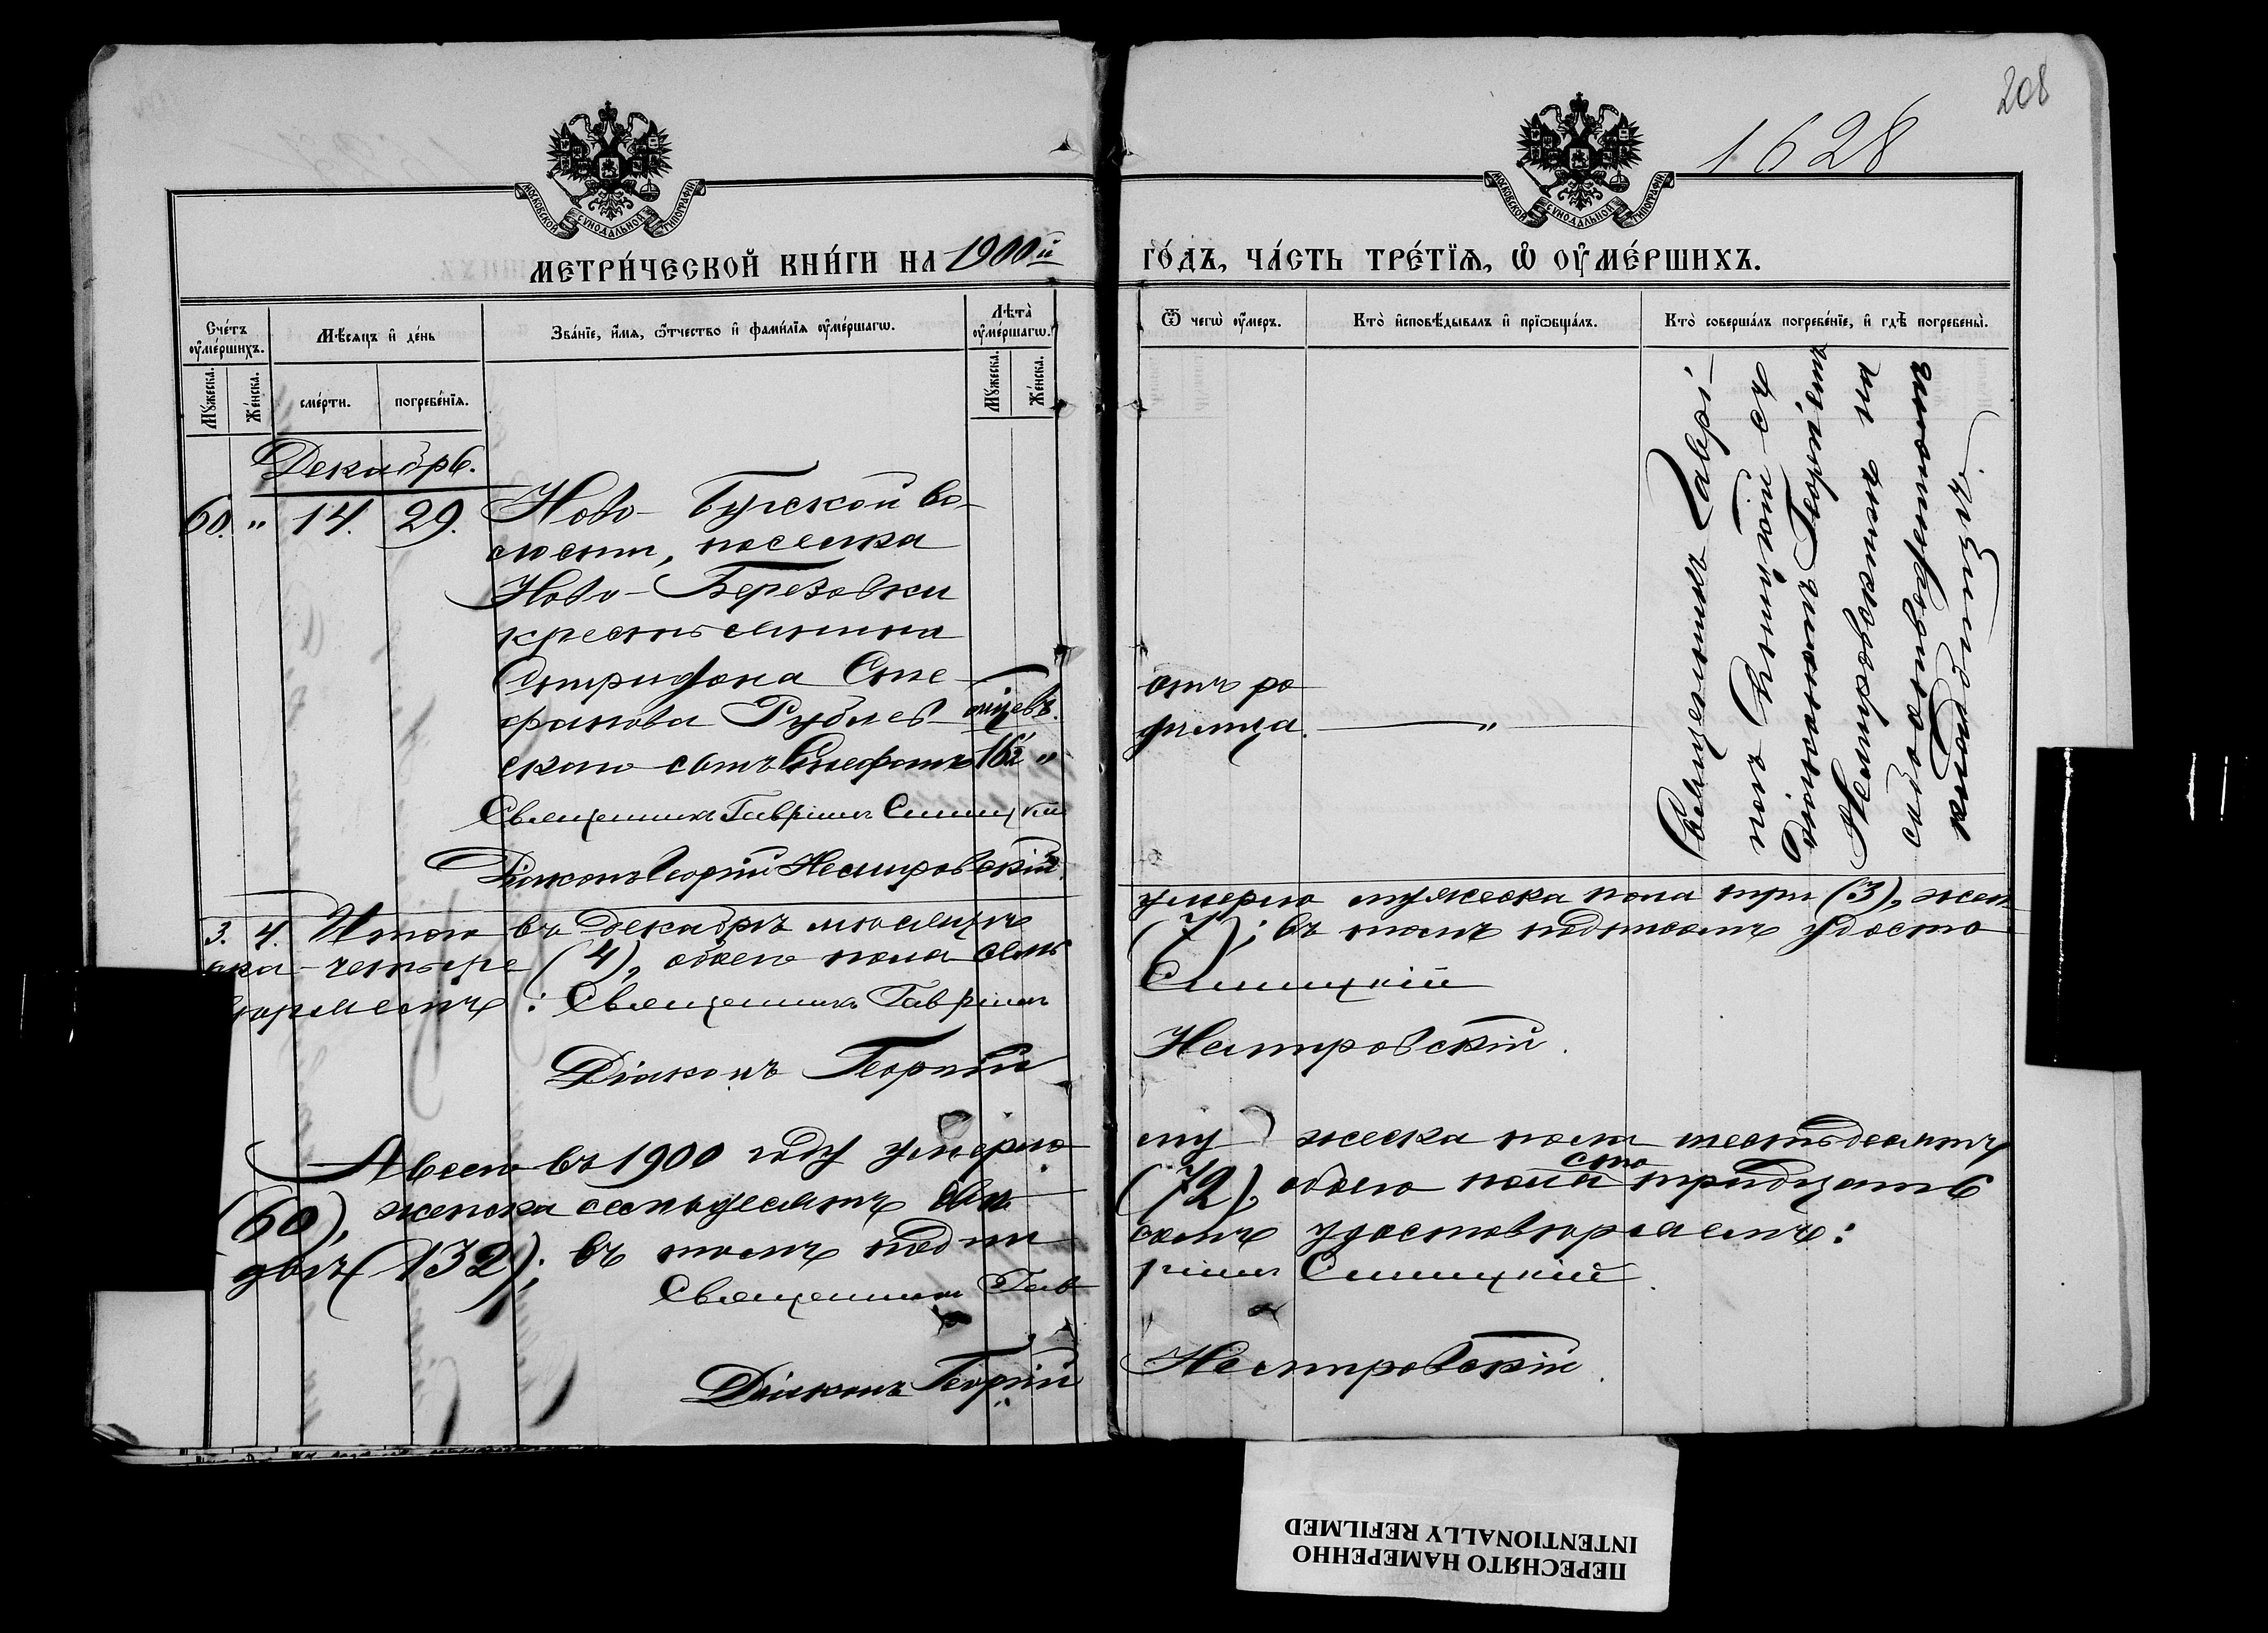 208
1628
МОСКОВСКОЙ СѴНОДАЛЬНОЙ ТИПОГРАФІИ
МОСКОВСКОЙ СѴНОДАЛЬНОЙ ТИПОГРАФІИ
МЕТРИ́ЧЕСКОЙ КНИ́ГИ НА 1900й
ГО́ДЪ, ЧА́СТЬ ТРЕ́ТІЯ, Ѡ ОУМЕ́РШИХЪ.
Сче́тъ оуме́ршихъ.
Му́жеска.
Же́нска.
Мѣсяцъ и де́нь
сме́рти.
погребе́нїя.
Зва́нїе, и́мя, ѻ҆́тчество и фами́лїя оуме́ршагѡ.
Лѣта̀ оуме́ршагѡ.
Му́жеска.
Же́нска.
Ѿ чегѡ̀ оу́меръ.
Кто̀ исповѣ́дывалъ и прїѡбща́лъ.
Кто̀ соверша́лъ погребе́нїе, и гдѣ̀ погребены̀.
Декабрь.
60. " 14. 29. Ново-Бугской во-
лости, поселка
Ново-Березовки
крестьянина
Спиридона Сте-
фанова Рублев-
скаго сынъ Стефанъ
мѣсяцевъ.
1 1/2 "
отъ ро
димца. — " —
Священникъ Гаврі-
илъ Синицкій съ
діакономъ Георгіемъ
Немировскимъ на
приходскомъ
кладбищѣ.
Священникъ Гавріилъ Синицкій
Діаконъ Георгій Немировскій
3. 4. Итого въ Декабрѣ мѣсяцѣ умерло мужеска пола три (3), жен
ска - четыре (4), обоего пола семь (7); въ томъ подписомъ удосто
вѣряемъ: Священникъ Гавріилъ Синицкій
Діаконъ Георгій Немировскій.
А всего въ 1900 году умерло мужеска пола шестьдесятъ
(60), женска семьдесятъ два (72), обоего пола сто тридцать
двѣ (132); въ томъ подписомъ удостовѣряемъ:
Священникъ Гавріилъ Синицкій.
Діаконъ Георгій Немировскій.
ПЕРЕСНЯТО НАМЕРЕННО
INTENTIONALLY REFILMED